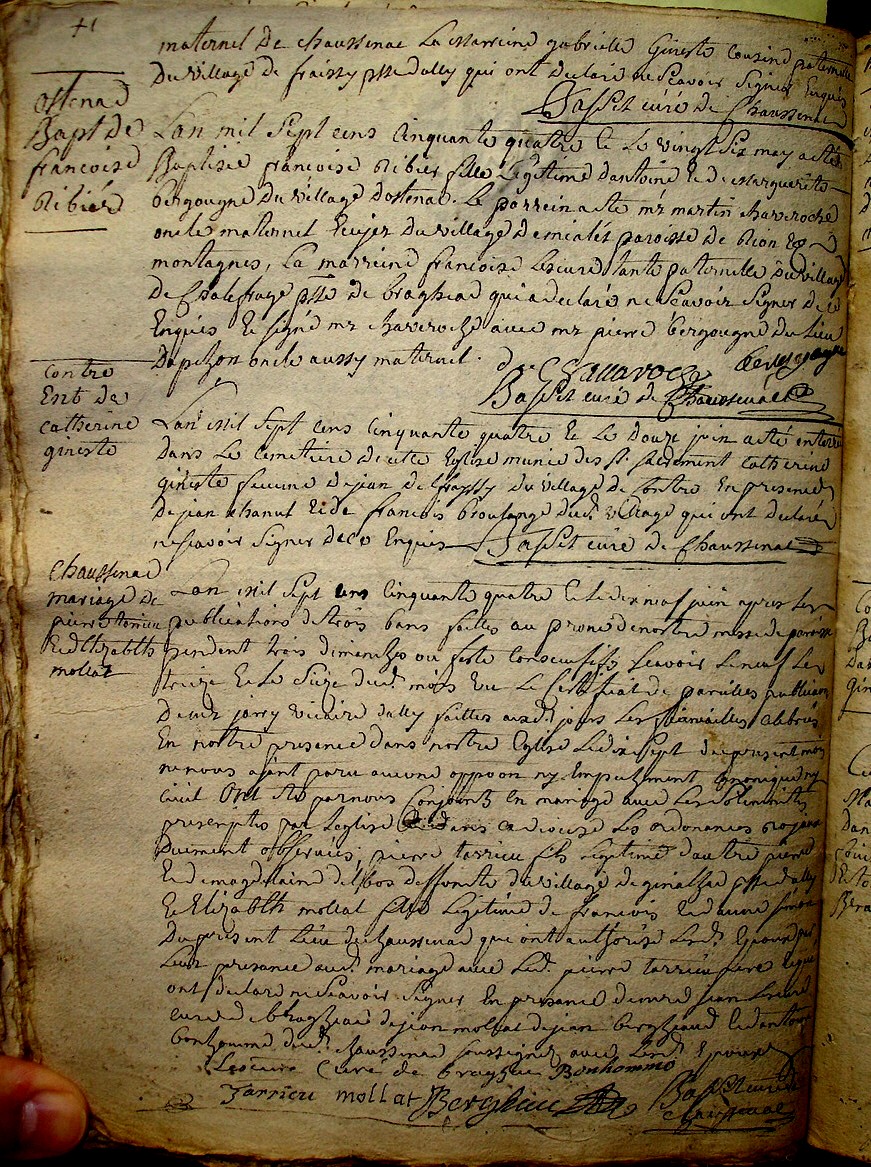 41
maternel De chaussenac La marreine gabrielle Gineste Cousine paternelle
Du village de fraissy psse dally qui ont declaré ne scavoir signer Enquis
Basset curé de Chaussenac
ostenac
Bapt de
francoise
Ribier
Lan mil sept cens Cinquante quatre Et Le vingt six may a été
Baptisée francoise Ribier fille Legitime dantoine Et de Marguerite
bergougne Du village Dostenac. Le parrein a été mr martin chaveroche
oncle maternel Du village De paroisse de Rion Es
montagnes, La marreine francoise Lescure tante paternelle Du village
De psse de braghac qui a declaré ne scavoir signer De ce
Enquis Et signé mr chaveroche avec mr pierre bergougne Du Lieu
oncle aussy maternel.
Chavaroche
Bergougne
Basset curé de Chaussenac
Contre
Ent de
catherine
gineste
Lan mil sept cens Cinquante quatre Et Le Douze juin a été enterrée
Dans Le Cemetiere de cette Eglise munie des sts sacrement Catherine
gineste femme de jean de fraissy du village De Contre En presence
De jean chanut Et de francois Du dt village qui ont declaré
ne scavoir signer De ce Enquis
Basset curé de Chaussenac
Chaussenac
mariage de
pierre tarrieu
Et dElizabeth
mollat
Lan mil sept cens Cinquante quatre Et Le dix neuf juin apres Les
publications de trois bans faittes au prone de nostre messe de paroisse
pendent trois dimenches ou feste Consecutifs scavoir Le neuf Le
treize Et Le seize du dt mois vu Le Certificat de pareilles publications
De mr jarry vicaire dally faittes aux dt jours Les fiancailles celebrés
En nostre presence dans nostre Eglise Le dix sept du present mois
ne nous ayant paru aucune oppoon ny Empechement Canonique ny
Civil Ont été par nous Conjoints En mariage avec Les solemnités
prescriptes par Leglise Les ordonances
Duement observées, pierre tarrieu fils Legitime dautre pierre
Et de magdelaine delbos deffunte du village de psse dally
Et Elizabeth mollat fille Legitime de francois Et danne
Du present Lieu de chaussenac qui ont authorisé Les dt Epoux par
Leur presance au dt mariage avec Le dt pierre tarrieu pere Lequel
ont declaré ne scavoir signer En presance de mr jean Lescure
curé de braghac de jean mollat de jean berghaud Et dantoine
bonhomme du dt chaussenac soussignes avec Les dt Epoux
Lescure Curé de braghac Bonhomme
Tarrieu mollat Berghaud
Basset curé de
Chaussenac